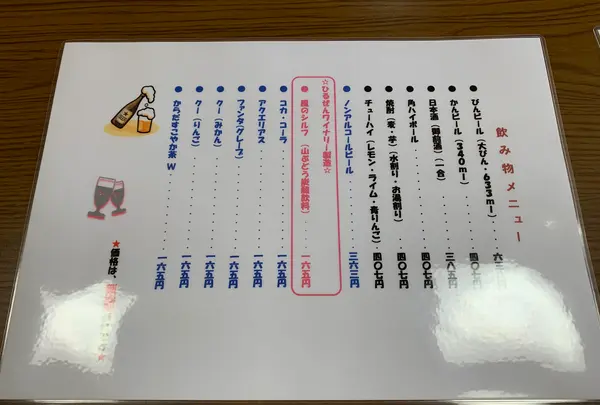 飲み物メニュー
●びんビール(大びん・633ml)・・・六
●かんビール(340ml)・・・・三八五円
●日本酒(御前酒)(一合)・・・・四〇七円
●角ハイボール・・・・・・・四〇七円
●焼酎(麦・芋)(水割り・お湯割り)・・四〇七円
●チューハイ(レモン・ライム・青りんご)・四〇七円
●ノンアルコールビール・・・・・三六三円
☆ひるぜんワイナリー製造☆
●風のシルフ(山ぶどう炭酸飲料)・・・一六五円
●コカ・コーラ・・・・・・・一六五円
●アクエリアス・・・・・・・一六五円
●ファンタ(グレープ)・・・・・一六五円
●クー(みかん)・・・・・・・一六五円
●クー(りんご)・・・・・・・一六五円
●からだすこやか茶W・・・・・・一六五円
★価格は、